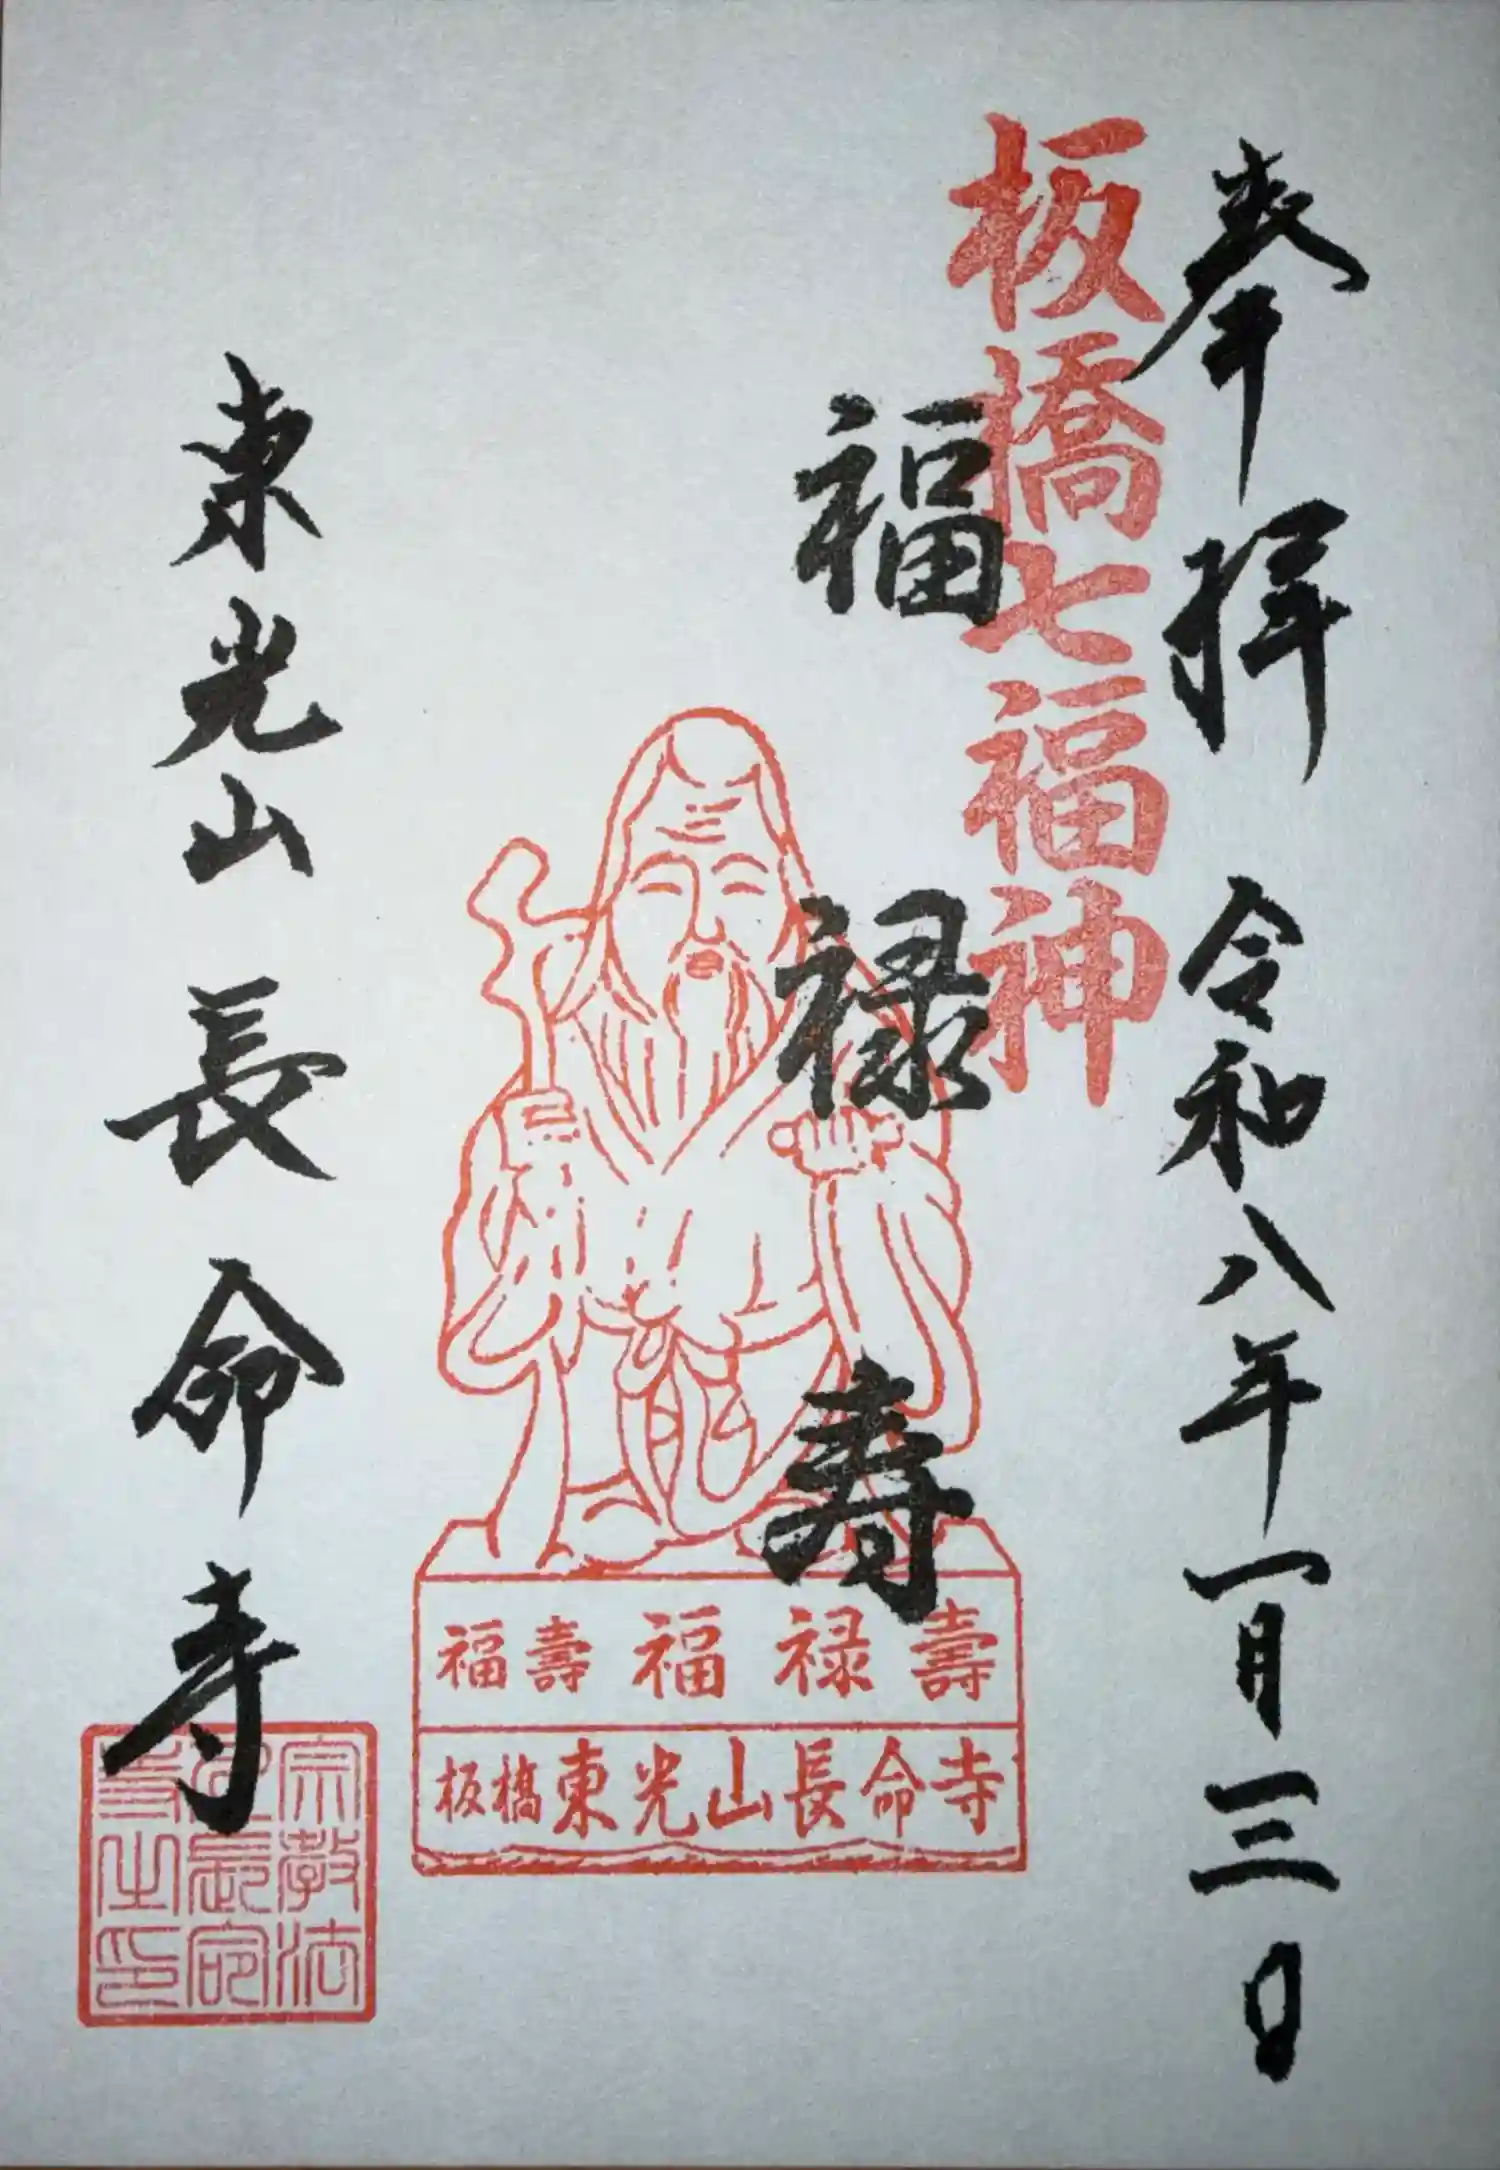 奉拝 令和八年一月三日
板橋七福神
福禄寿
福壽 福禄壽
板橋東光山長命寺
東光山長命寺
宗教法
人長命
寺之印